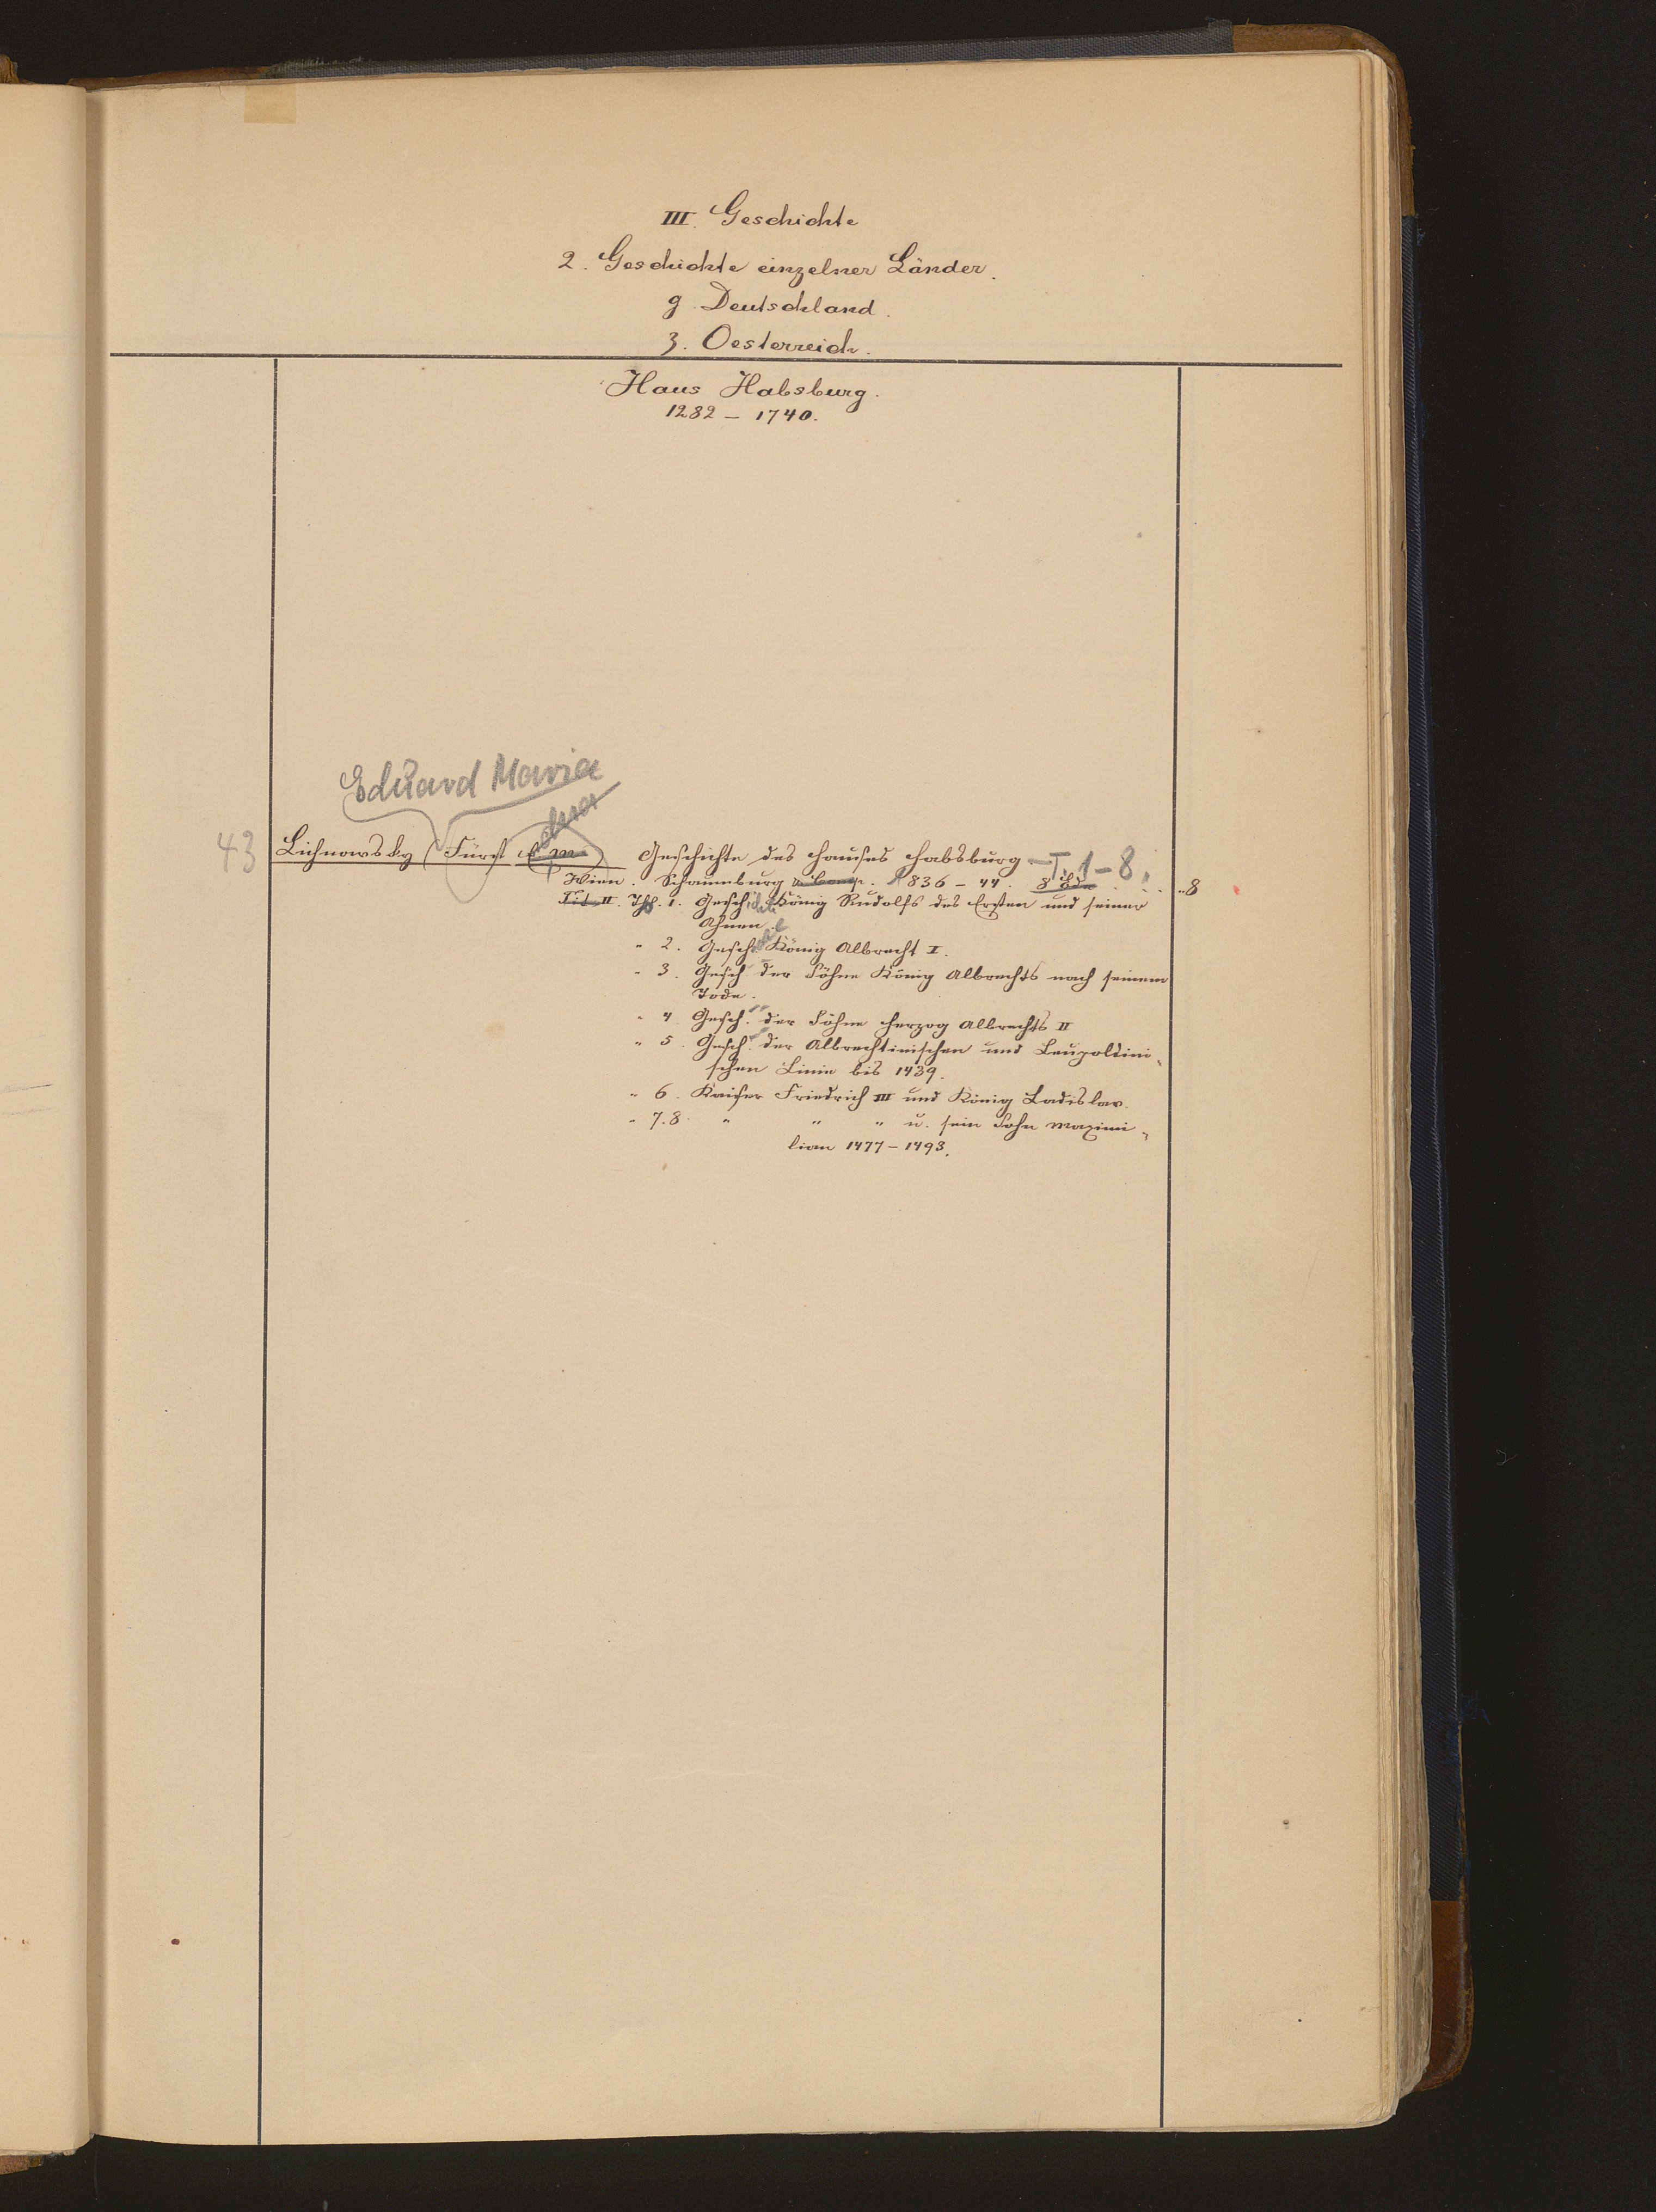 III. Geschichte
2. Geschichte einzelner Länder.
g Deutschland.
3. Oesterreich.
Haus Habsburg.
1282 – 1740.
Eduard Maria
43 Lichnowsky (Fürst E M) Geschichte des Hauses Habsburg – T 1–8.
Wien. Schaumburg u. Comp. 1836 – 44. 8 Bde . . . . 8
Tit. II. Thl. 1. Geschichte König Rudolfs des Ersten und seiner
Ahnen.
" 2. Gesch. König Albrecht I.
" 3. Gesch der Söhne König Albrechts nach seinem
Tode.
" 4. Gesch. der Söhne Herzog Albrechts II
" 5. Gesch. der Albrechtinischen und Leupoldini-
schen Linie bis 1439.
" 6. Kaiser Friedrich III und König Ladislav.
" 7.8. " " " u. sein Sohn Maximi-
lian 1477–1493.